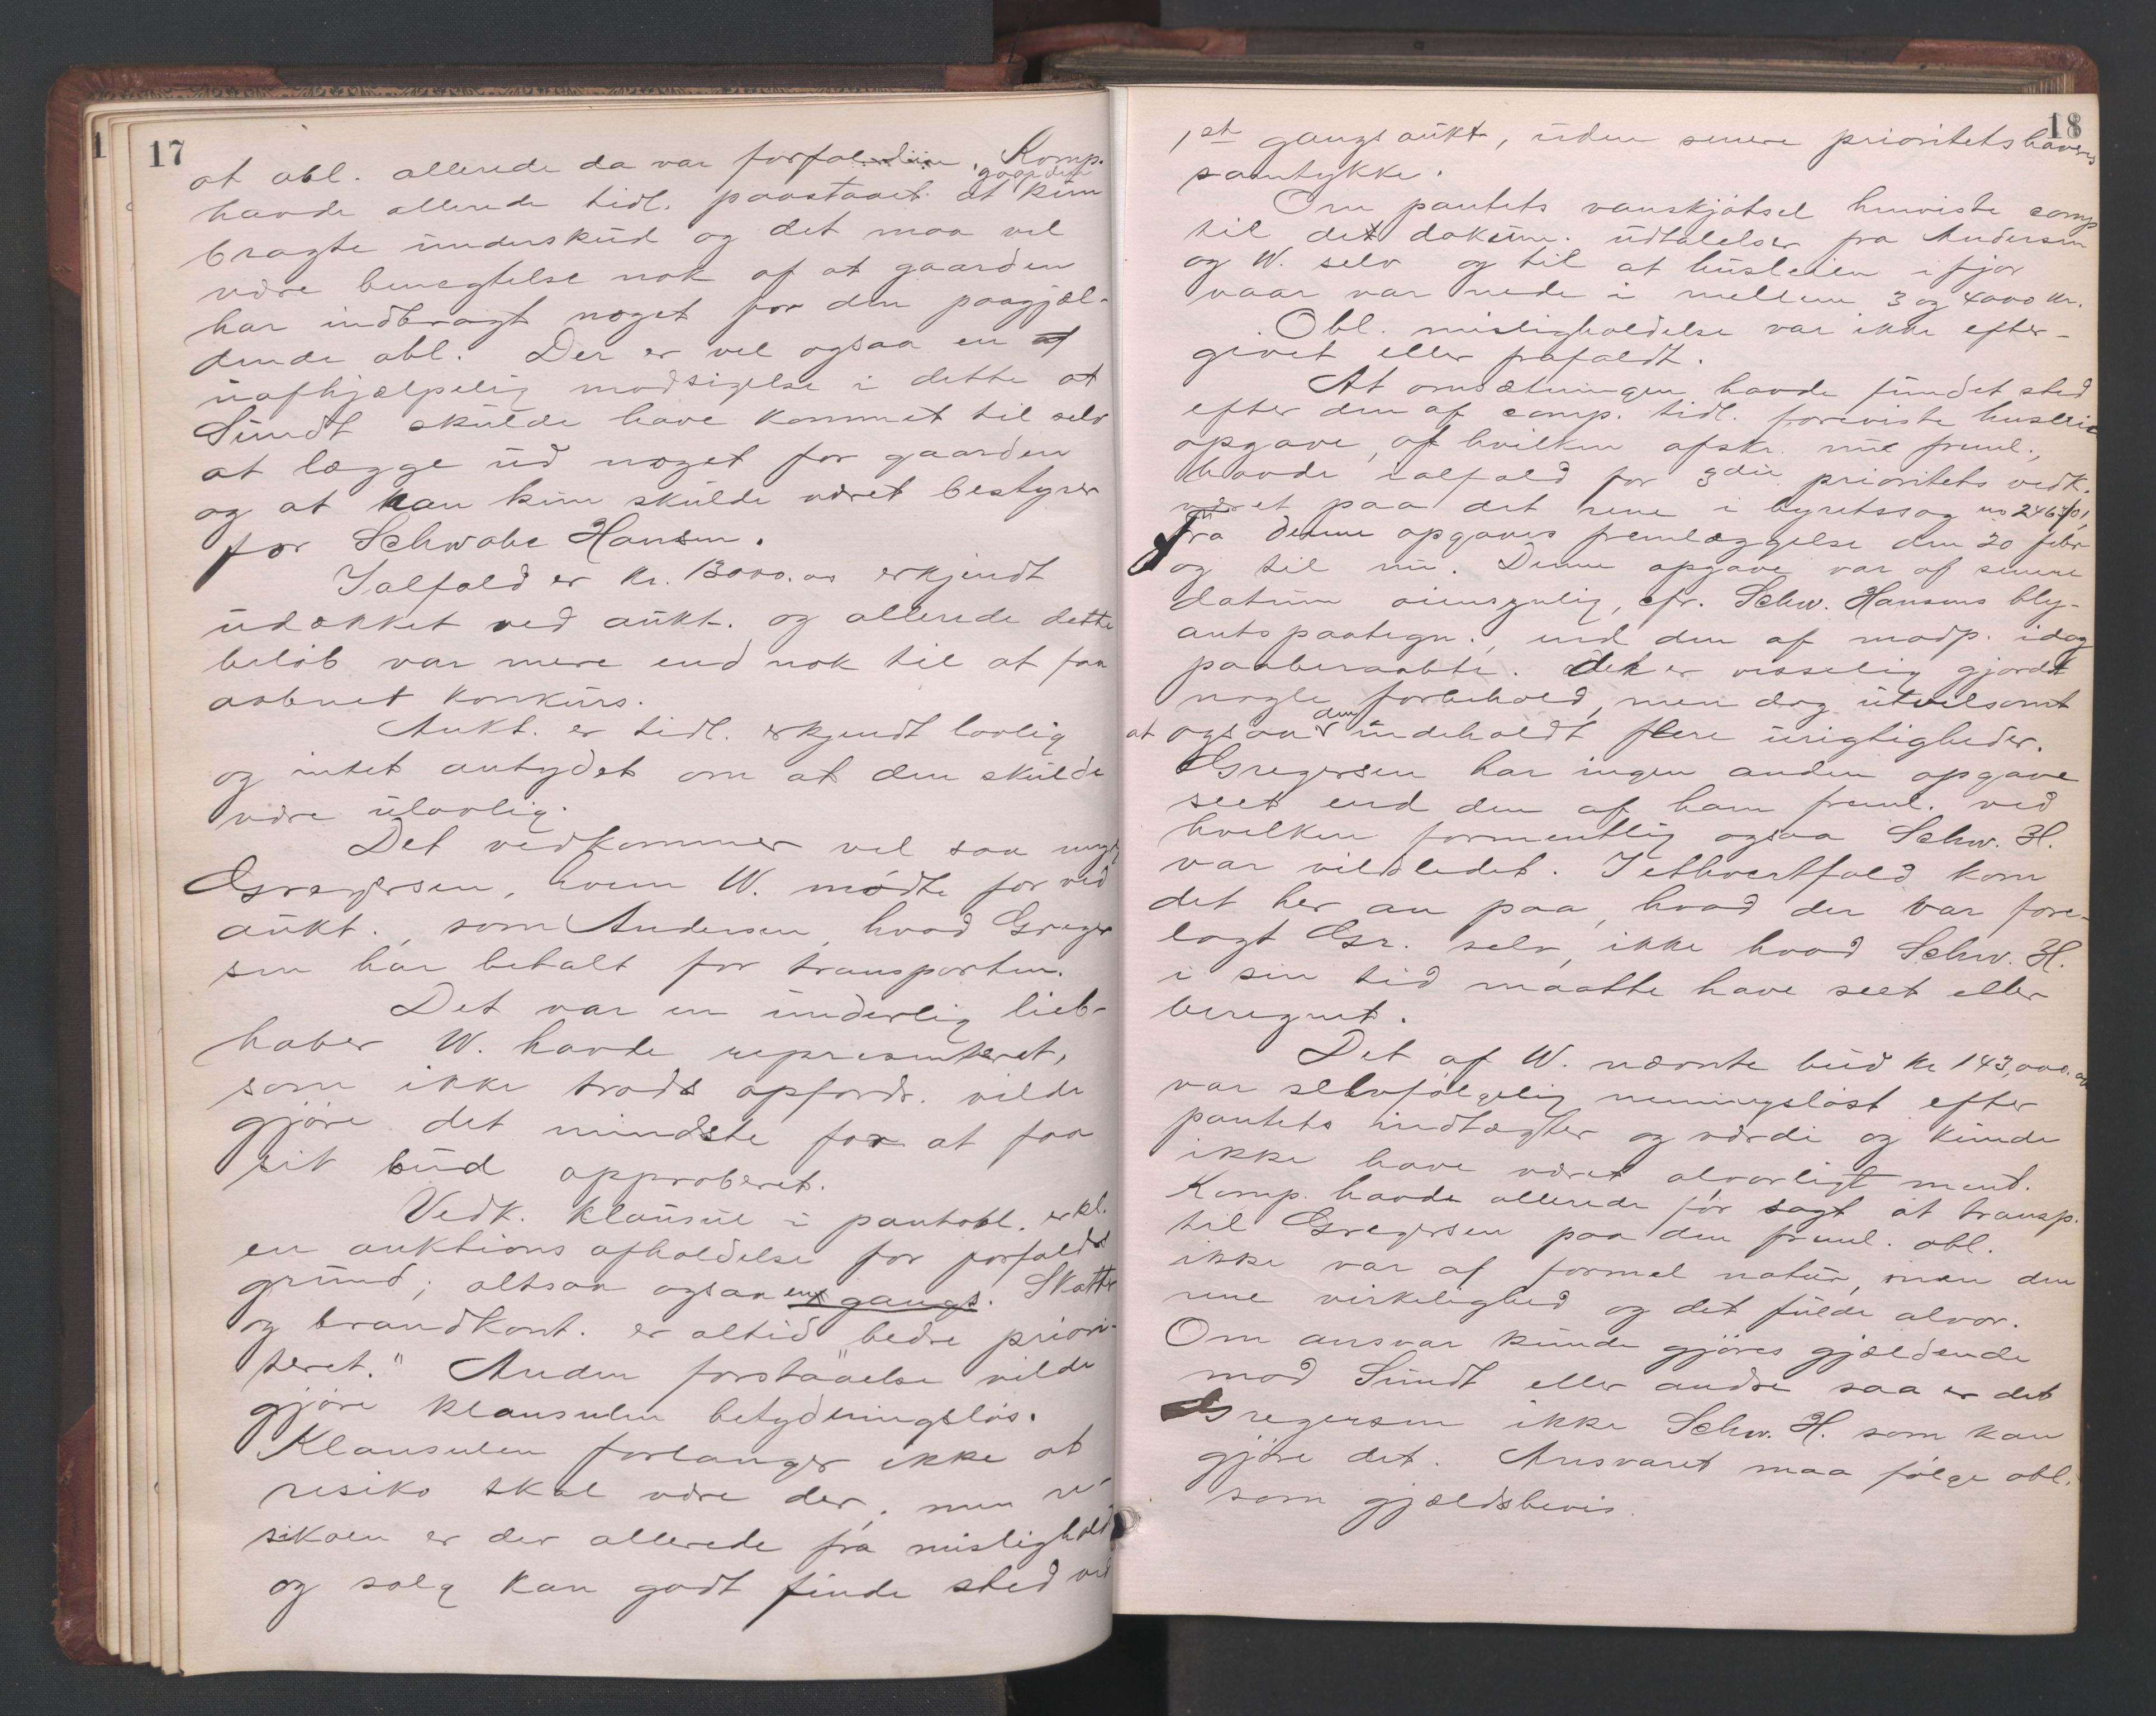 17
at obl. allerede da var forfalden. Komp.
havde allerede tidl. paastaaet at gaarden kun
bragte underskud og det maa vel
være benegtelse nok af at gaarden
har indbragt noget for den paagjæl-
dende obl. Der er vel ogsaa en
uafhjælpelig modsigelse i dette at
Sundt skulde have kommet til selv
at lægge ud noget for gaarden
og at han kun skulde været bestyrer
for Schwabe Hansen.
Ialfald er kr. 13000.00 erkjendt
udækket ved aukt. og allerede dette
beløb var mere end nok til at faa
aabnet konkurs.
Aukt. er tidl. erkjendt lovlig
og intet antydet om at den skulde
være ulovlig.
Det vedkommer vel saa meget
Gregersen, hvem W. mødte for ved
aukt., som Andersen, hvad Greger
sen har betalt for transporten.
Det var en underlig lieb-
haber W. havde repræsenteret,
som ikke trods opfordr. vilde
gjøre det mindste for at faa
sit bud approberet.
Vedk. klausul i pantobl. erkl.
en auktions afholdelse for forfalds
grund; altsaa ogsaa en gangs. Skatte
og brandkont. er altid "bedre priori-
teret." Anden forstaaelse vilde
gjøre klausulen betydningsløs.
Klausulen forlanger ikke at
risiko skal være der, men ri-
sikoen er der allerede fra mislighold
og salg kan godt finde sted ved
18
1ste gangs aukt, uden senere prioritetshaveres
samtykke.
Om pantets vanskjøtsel henviste comp
til det dokum. udtalelser fra Andersen
og W. selv og til at husleien ifjor
vaar var nede i mellem 3 og 4000 kr.
Obl. misligholdelse var ikke efter-
givet eller frafaldt.
At omsætningen havde fundet sted
efter den af comp. tidl. foreviste husleie
opgave, af hvilken afskr. nu freml.,
havde ialfald for 3die prioritets vedk.
været paa det rene i byretssag no 246/01,
fra denne opgaves fremlæggelse den 20 febr
og til nu. Denne opgave var af senere
datum øiensynlig, cfr. Schw. Hansens bly-
antspaategn., end den af modp. idag
paaberaabte. Der er visselig gjordt
nogle forbehold, men dog utvilsomt
at ogsaa den indeholdt flere urigtigheder.
Gregersen har ingen anden opgave
seet end den af ham freml. ved
hvilken formentlig ogsaa Schw. H.
var vildledet. I ethvertfald kom
det her an paa, hvad der var fore-
lagt Gr. selv, ikke hvad Schw. H.
i sin tid maatte have seet eller
beregnet.
Det af W. nævnte bud kr 143,000.00
var selvfølgelig meningsløst efter
pantets indtægter og værdi og kunde
ikke have været alvorligt ment.
Komp. havde allerede før sagt at transp.
til Gregersen paa den freml. obl.
ikke var af formel natur, men den
rene virkelighed og det fulde alvor.
Om ansvar kunde gjøres gjældende
mod Sundt eller andre saa er det
Gregersen ikke Schw. H. som kan
gjøre det. Ansvaret maa følge obl.
som gjældsbevis.